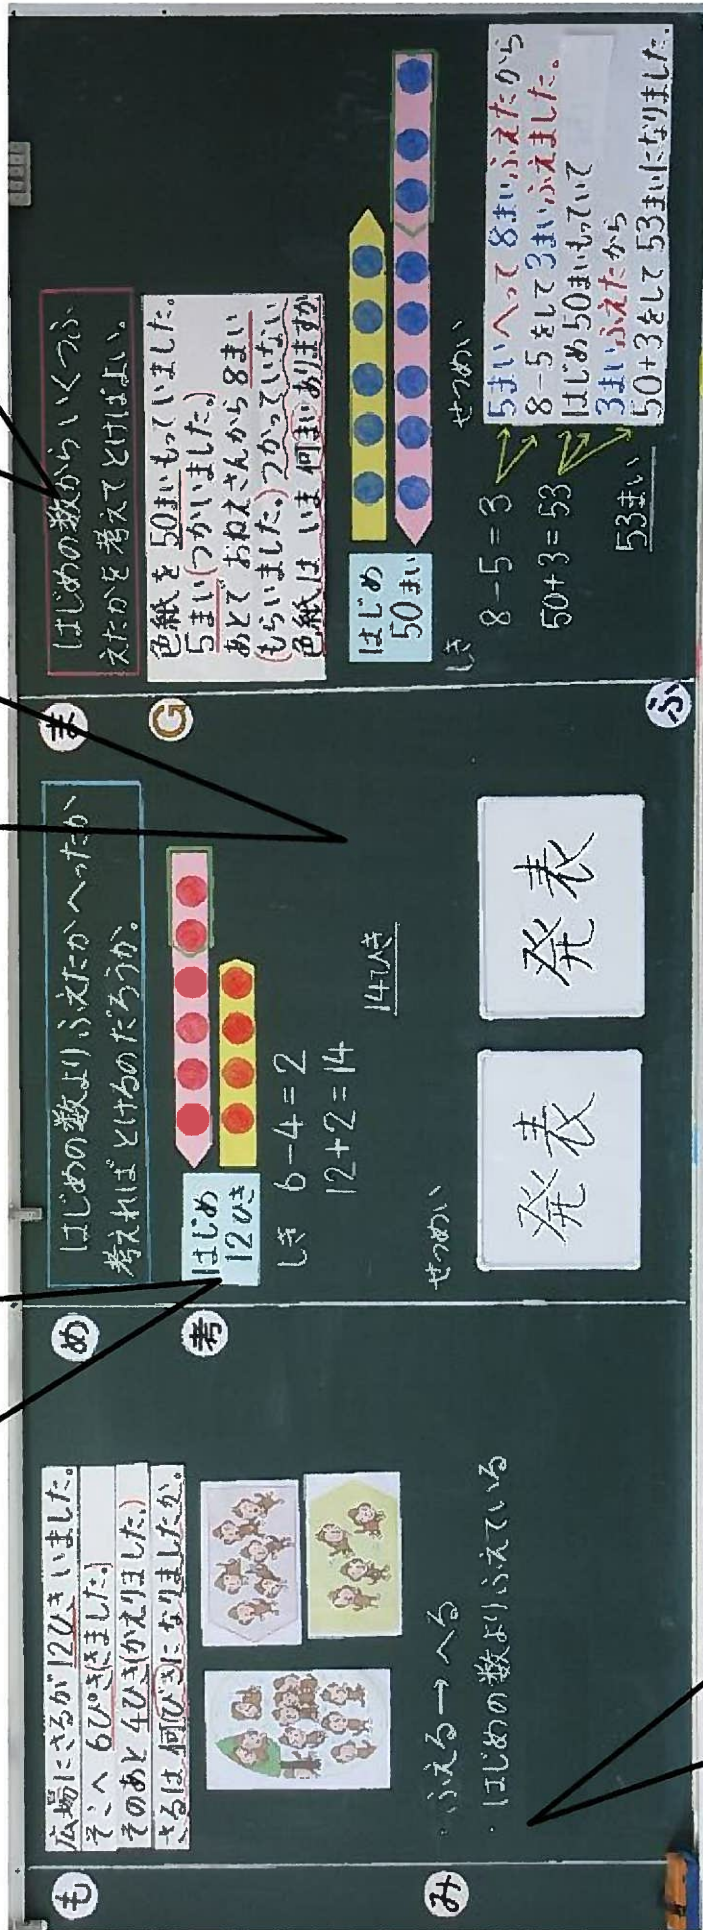 も
広場にさるが12ひきいました。
そこへ6ぴき(きました。)
そのあと4ひき(かえりました。)
さるは何びきになりましたか。
み
・ふえる→へる
・はじめの数よりふえている
め
はじめの数よりふえたかへったか
考えればとけるのだろうか。
考
はじめ
12ひき
しき 6-4=2
12+2=14
14ひき
せつめい
発表
発表
ま
はじめの数からいくつふ
えたかを考えてとけばよい。
G
色紙を50まいもっていました。
5まい(つかいました。)
あとでおねえさんから8まい
(もらいました。)つかっていない
色紙は、いま何まいありますか
はじめ
50まい
しき
8-5=3
50+3=53
53まい
せつめい
5まいへって8まいふえたから
8-5をして3まいふえました。
はじめ50まいもっていて
3まいふえたから
50+3をして53まいになりました。
ふ